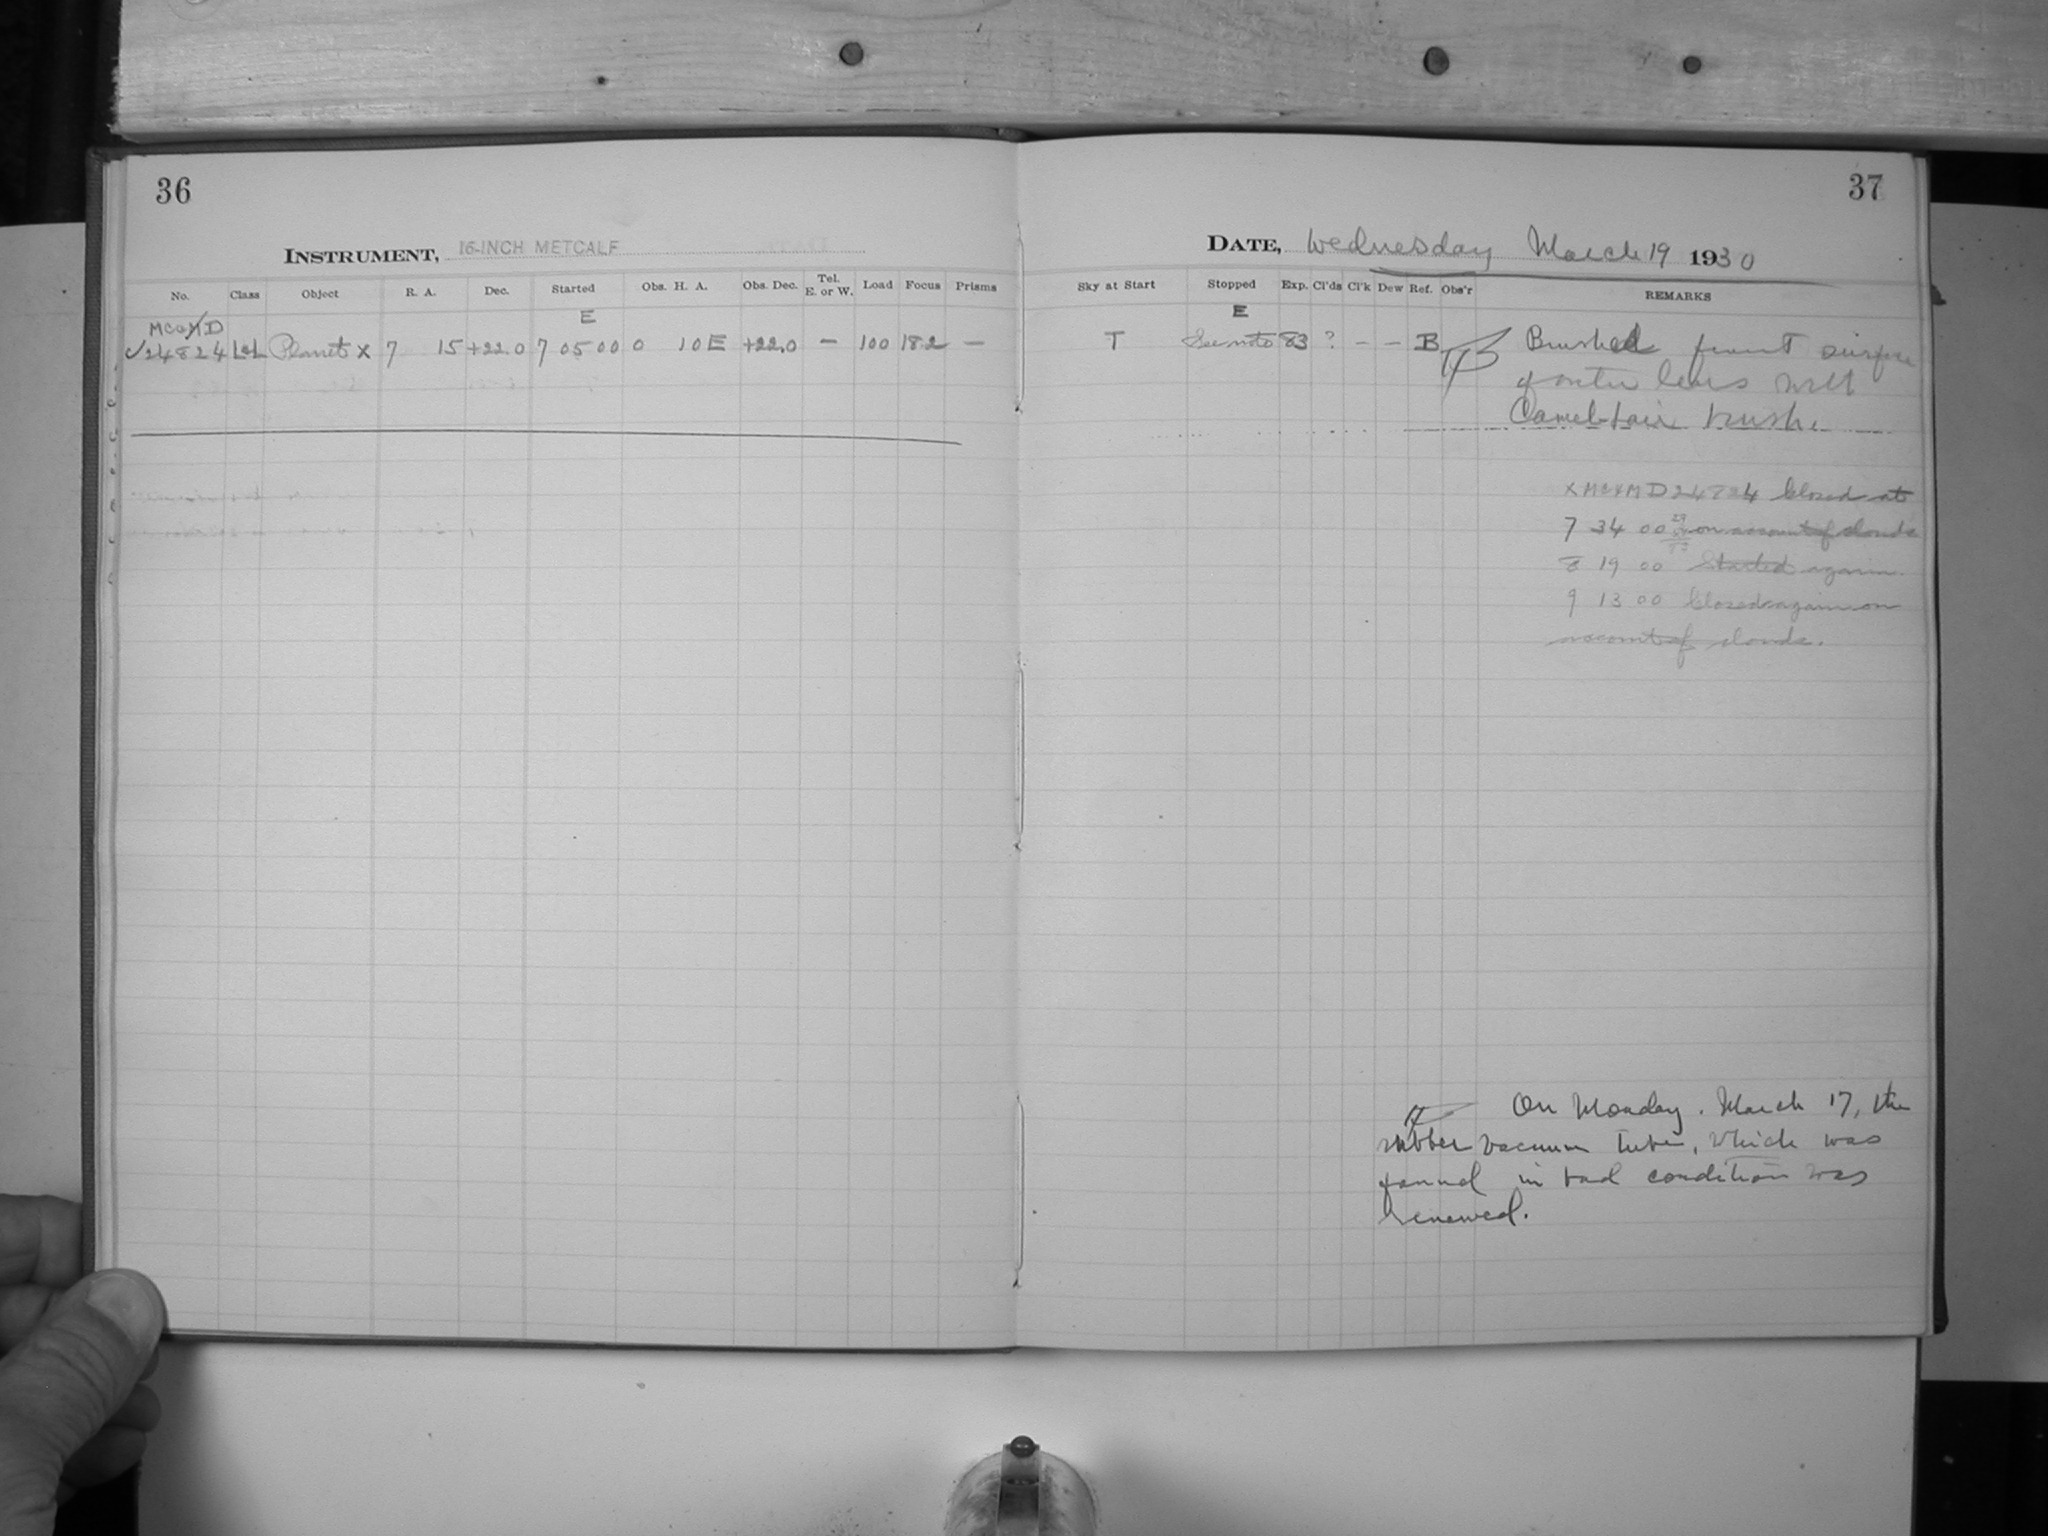 36
INSTRUMENT, 16-INCH METCALF
No. Class Object R. A. Dec. Started Obs. H. A. Obs. Dec. Tel. E. or W. Load Focus Prisms
E
24824 Planet X 7 15 +22.0 7 05 00 0 10 E +22.0 – 100 182 –
37
DATE, Wednesday March 19 1930
Sky at Start Stopped Exp. Cl'ds Cl'k Dew Ref. Obs'r REMARKS
E
T See note 83 ? – – B Brushed front surface
of outer lens with
Camel-hair brush.
24824 Closed at
7 34 00 on account of clouds
8 19 00 Started again.
9 13 00 Closed again on
account of clouds.
On Monday, March 17, the
rubber vacuum tube, which was
found in bad condition was
renewed.